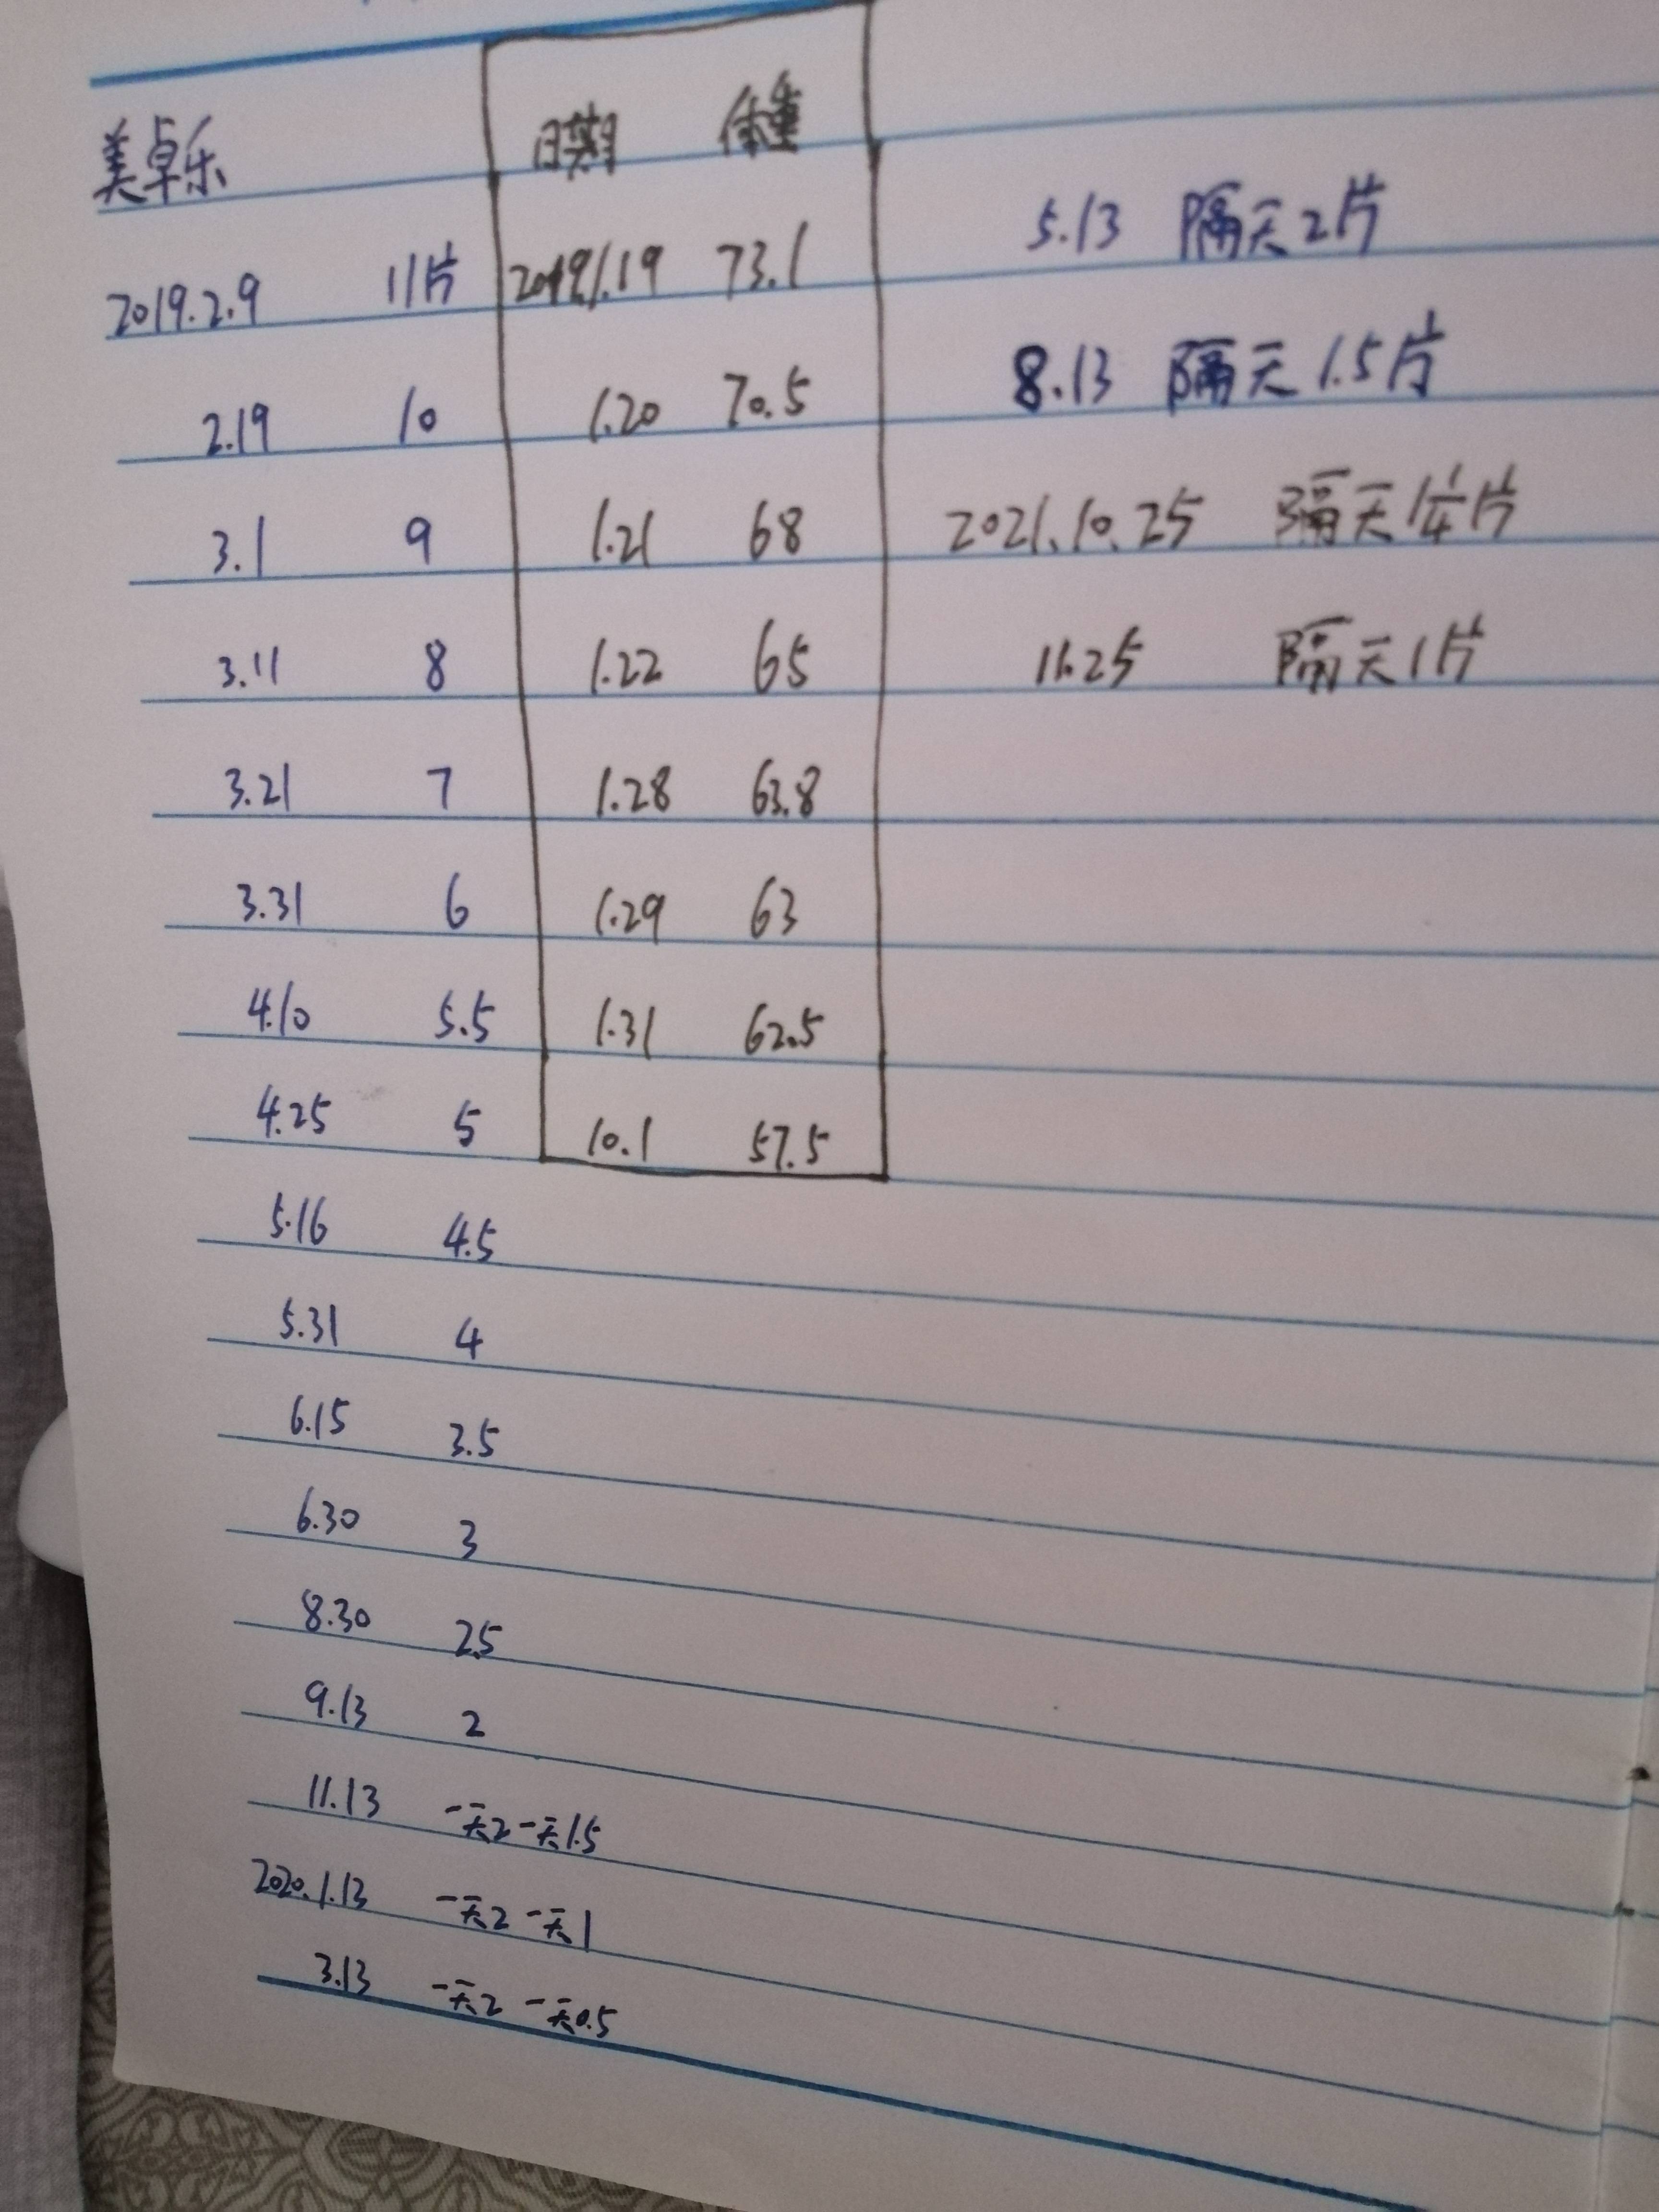 美卓乐
2019.2.9 11片
2.19 10
3.1 9
3.11 8
3.21 7
3.31 6
4.10 5.5
4.25 5
5.16 4.5
5.31 4
6.15 3.5
6.30 3
8.30 2.5
9.13 2
11.13 一天2一天1.5
2020.1.13 一天2一天1
3.13 一天2一天0.5
日期 体重
2019.1.19 73.1
1.20 70.5
1.21 68
1.22 65
1.28 63.8
1.29 63
1.31 62.5
10.1 57.5
5.13 隔天2片
8.13 隔天1.5片
2021.10.25 隔天1¼片
11.25 隔天1片